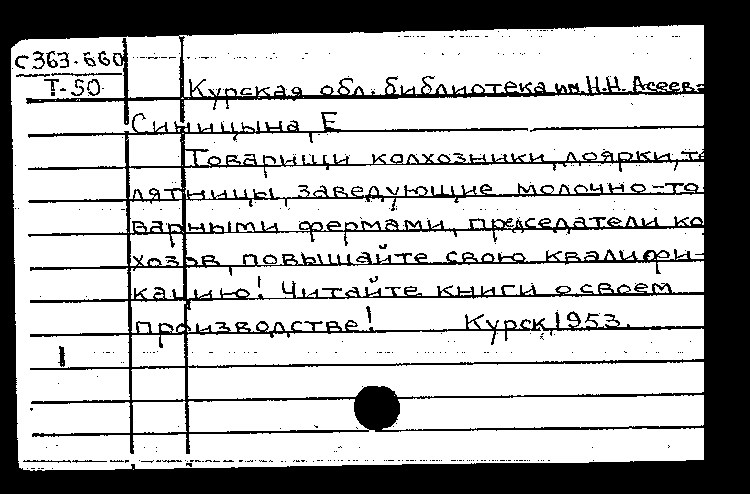 С363.660
Т-50
Курская обл. библиотека им. Н.Н. Асеев
Синицына, Е
Товарищи колхозники, доярки, те
лятницы, заведующие молочно-то
варными фермами, председатели ко
хозов, повышайте свою квалифи-
кацию! Читайте книги о своем
производстве! Курск, 1953.
1